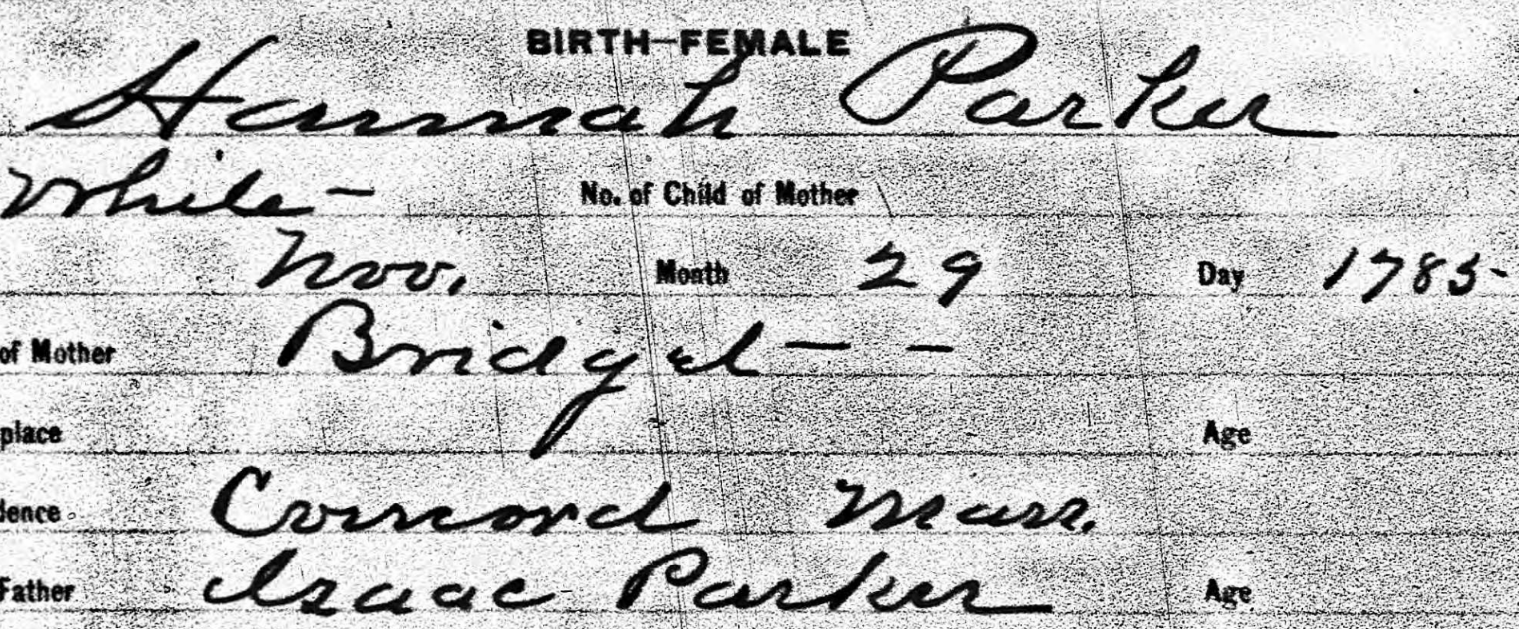 BIRTH—FEMALE
Hannah Parker
White — No. of Child of Mother
Nov. Month 29 Day 1785-
of Mother Bridget — —
place Age
dence Concord Mass.
Father Isaac Parker Age